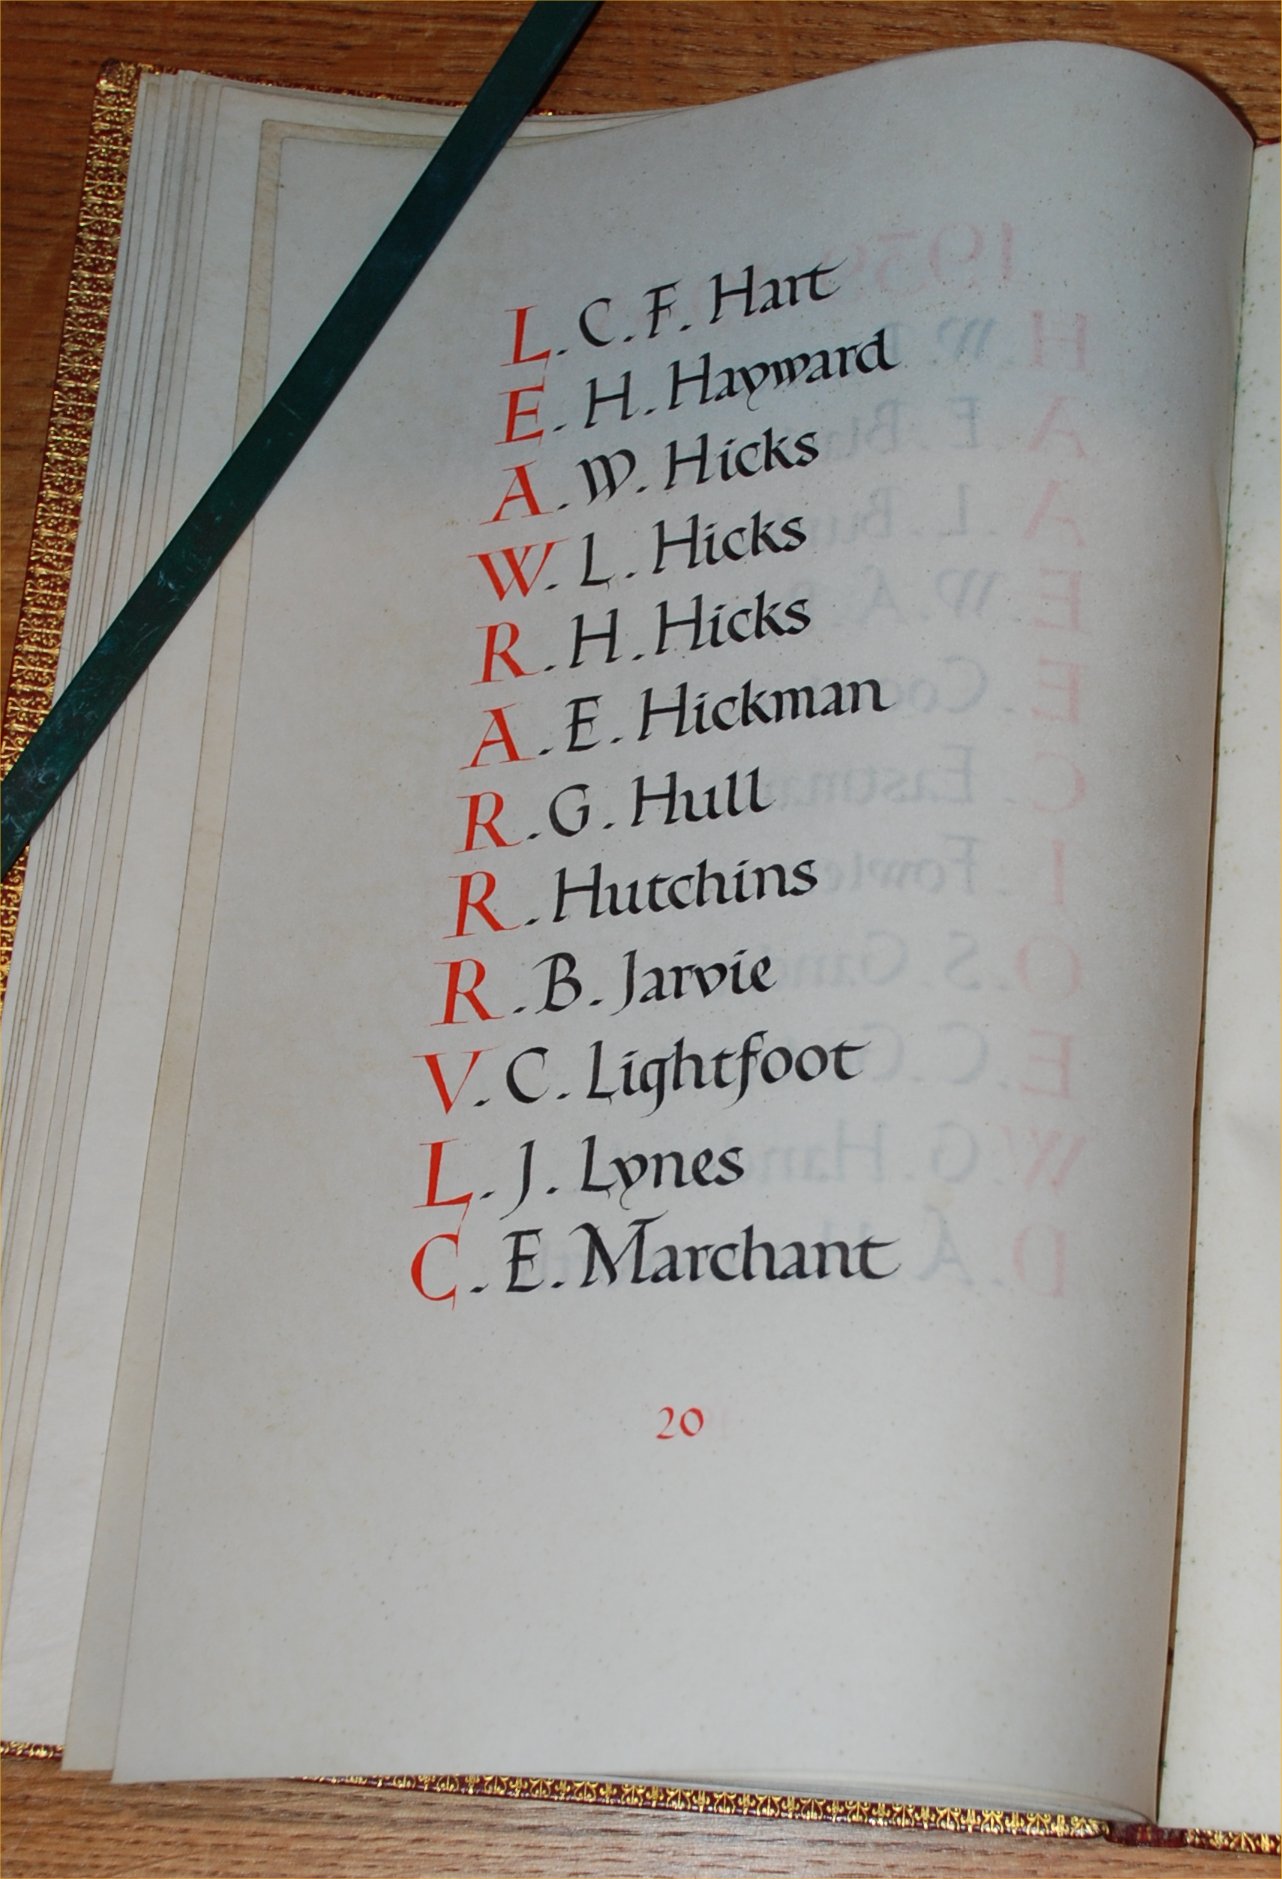 L. C. F. Hart
E. H. Hayward
A. W. Hicks
W. L. Hicks
R. H. Hicks
A. E. Hickman
R. G. Hull
R. Hutchins
R. B. Jarvie
V. C. Lightfoot
L. J. Lynes
C. E. Marchant
20